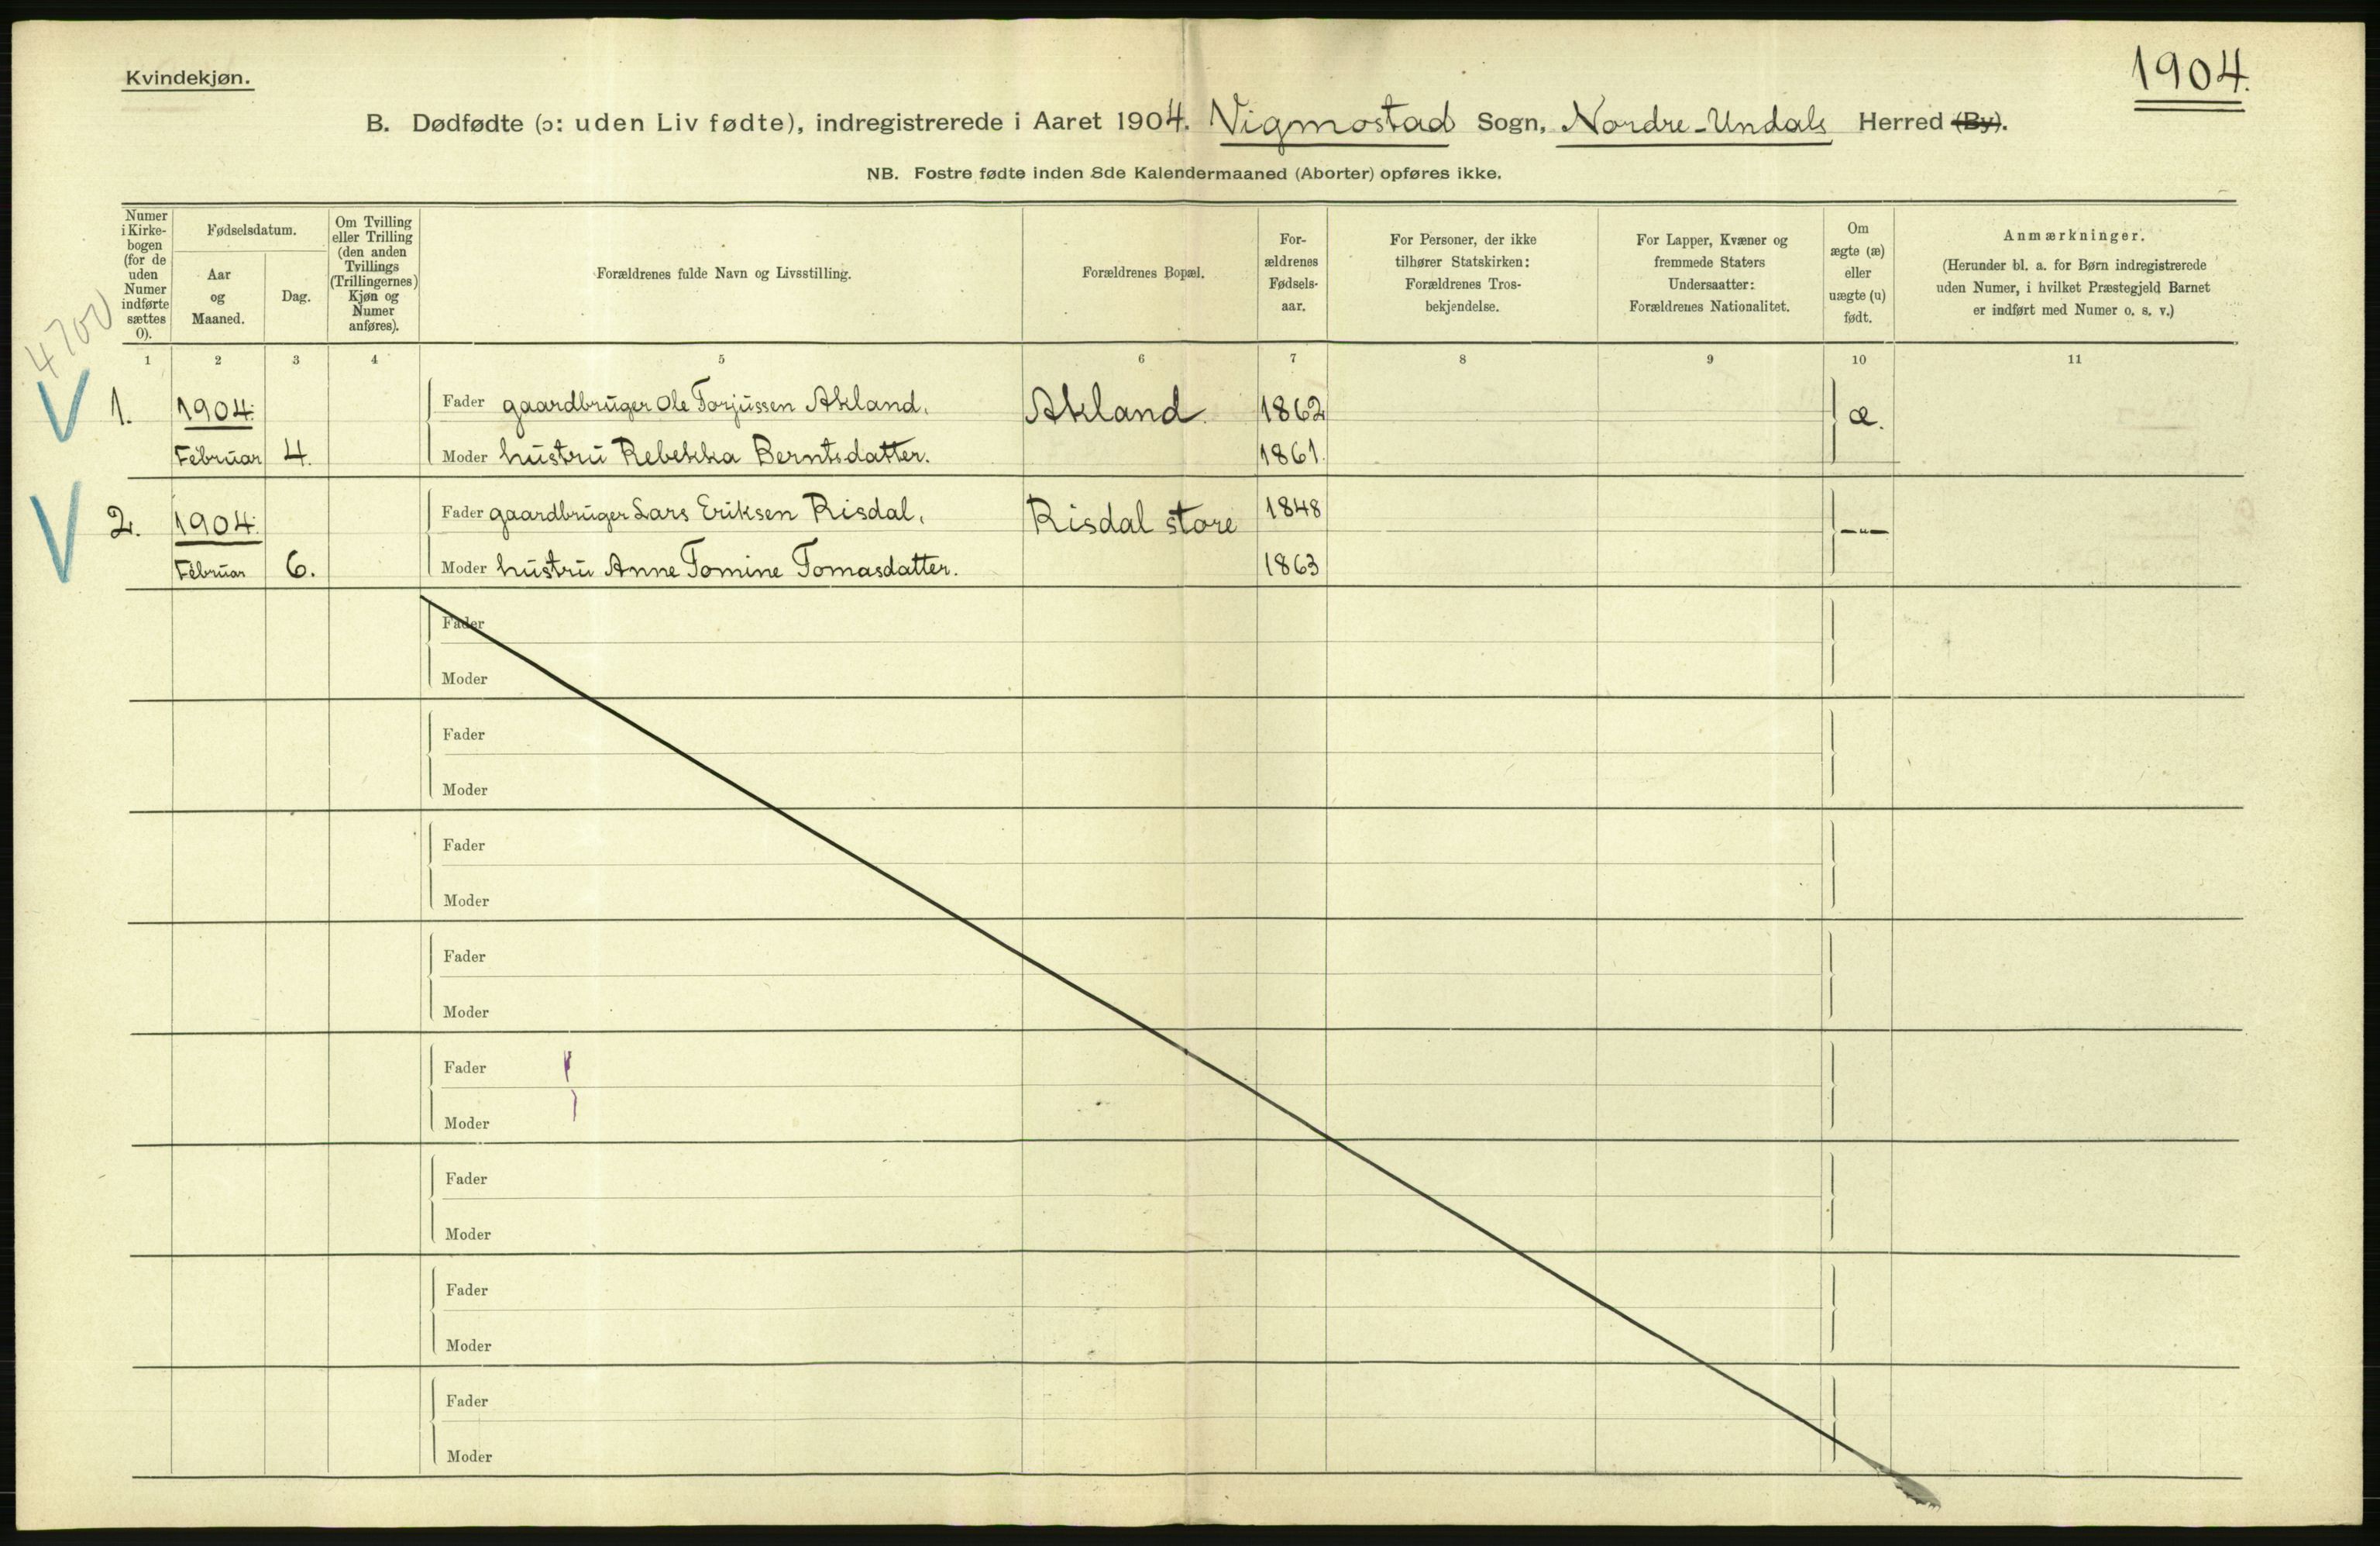 Kvindekjøn.
1904.
B. Dødfødte (ɔ: uden Liv fødte), indregistrerede i Aaret 1904. Vigmostad Sogn, Nordre-Undals Herred (By).
NB. Fostre fødte inden 8de Kalendermaaned (Aborter) opføres ikke.
Numer i Kirke-bogen (for de uden Numer indførte sættes 0).
Fødselsdatum.
Aar og Maaned.
Dag.
Om Tvilling eller Trilling (den anden Tvillings (Trillingernes) Kjøn og Numer anføres).
Forældrenes fulde Navn og Livsstilling.
Forældrenes Bopæl.
For-ældrenes Fødsels-aar.
For Personer, der ikke tilhører Statskirken: Forældrenes Tros-bekjendelse.
For Lapper, Kvæner og fremmede Staters Undersaatter: Forældrenes Nationalitet.
Om ægte (æ) eller uægte (u) født.
Anmærkninger.
(Herunder bl. a. for Børn indregistrerede uden Numer, i hvilket Præstegjeld Barnet er indført med Numer o. s. v.)
4700
1 2 3 4 5 6 7 8 9 10 11
V 1. 1904. Fader gaardbruger Ole Torjussen Akland. Akland 1862 æ.
Februar 4. Moder hustru Rebekka Berntsdatter. 1861.
V 2. 1904. Fader gaardbruger Lars Eriksen Risdal, Risdal store 1848 —"—
Februar 6. Moder hustru Anne Tomine Tomasdatter. 1863
Fader
Moder
Fader
Moder
Fader
Moder
Fader
Moder
Fader
Moder
Fader
Moder
Fader
Moder
Fader
Moder